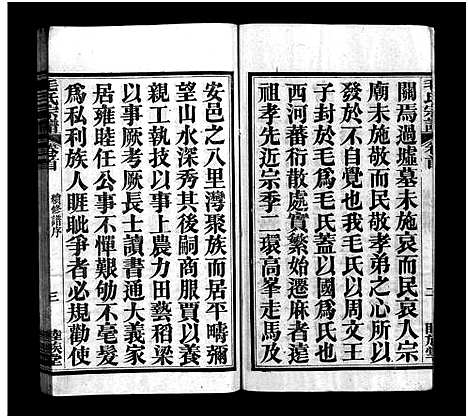 關焉過墟墓未施哀而民哀人宗
廟未施敬而民敬孝弟之心所以
發於不自覺也我毛氏以周文王
子封於毛為毛氏蓋以國為氏也
西河蕃衍散處實繁始遷麻者諱
祖孝先近宗季二環高峯走馬及
毛氏宗譜
卷首
續修譜序
三
安邑之八里灣聚族而居平疇彌
望山水深秀其後嗣商服賈以養
親工執技以事上農力田蓺稻粱
以事厥考厥長士讀書通大義家
居雍睦任公事不憚艱劬不毫髮
為私利族人眶眦爭者必規勸使